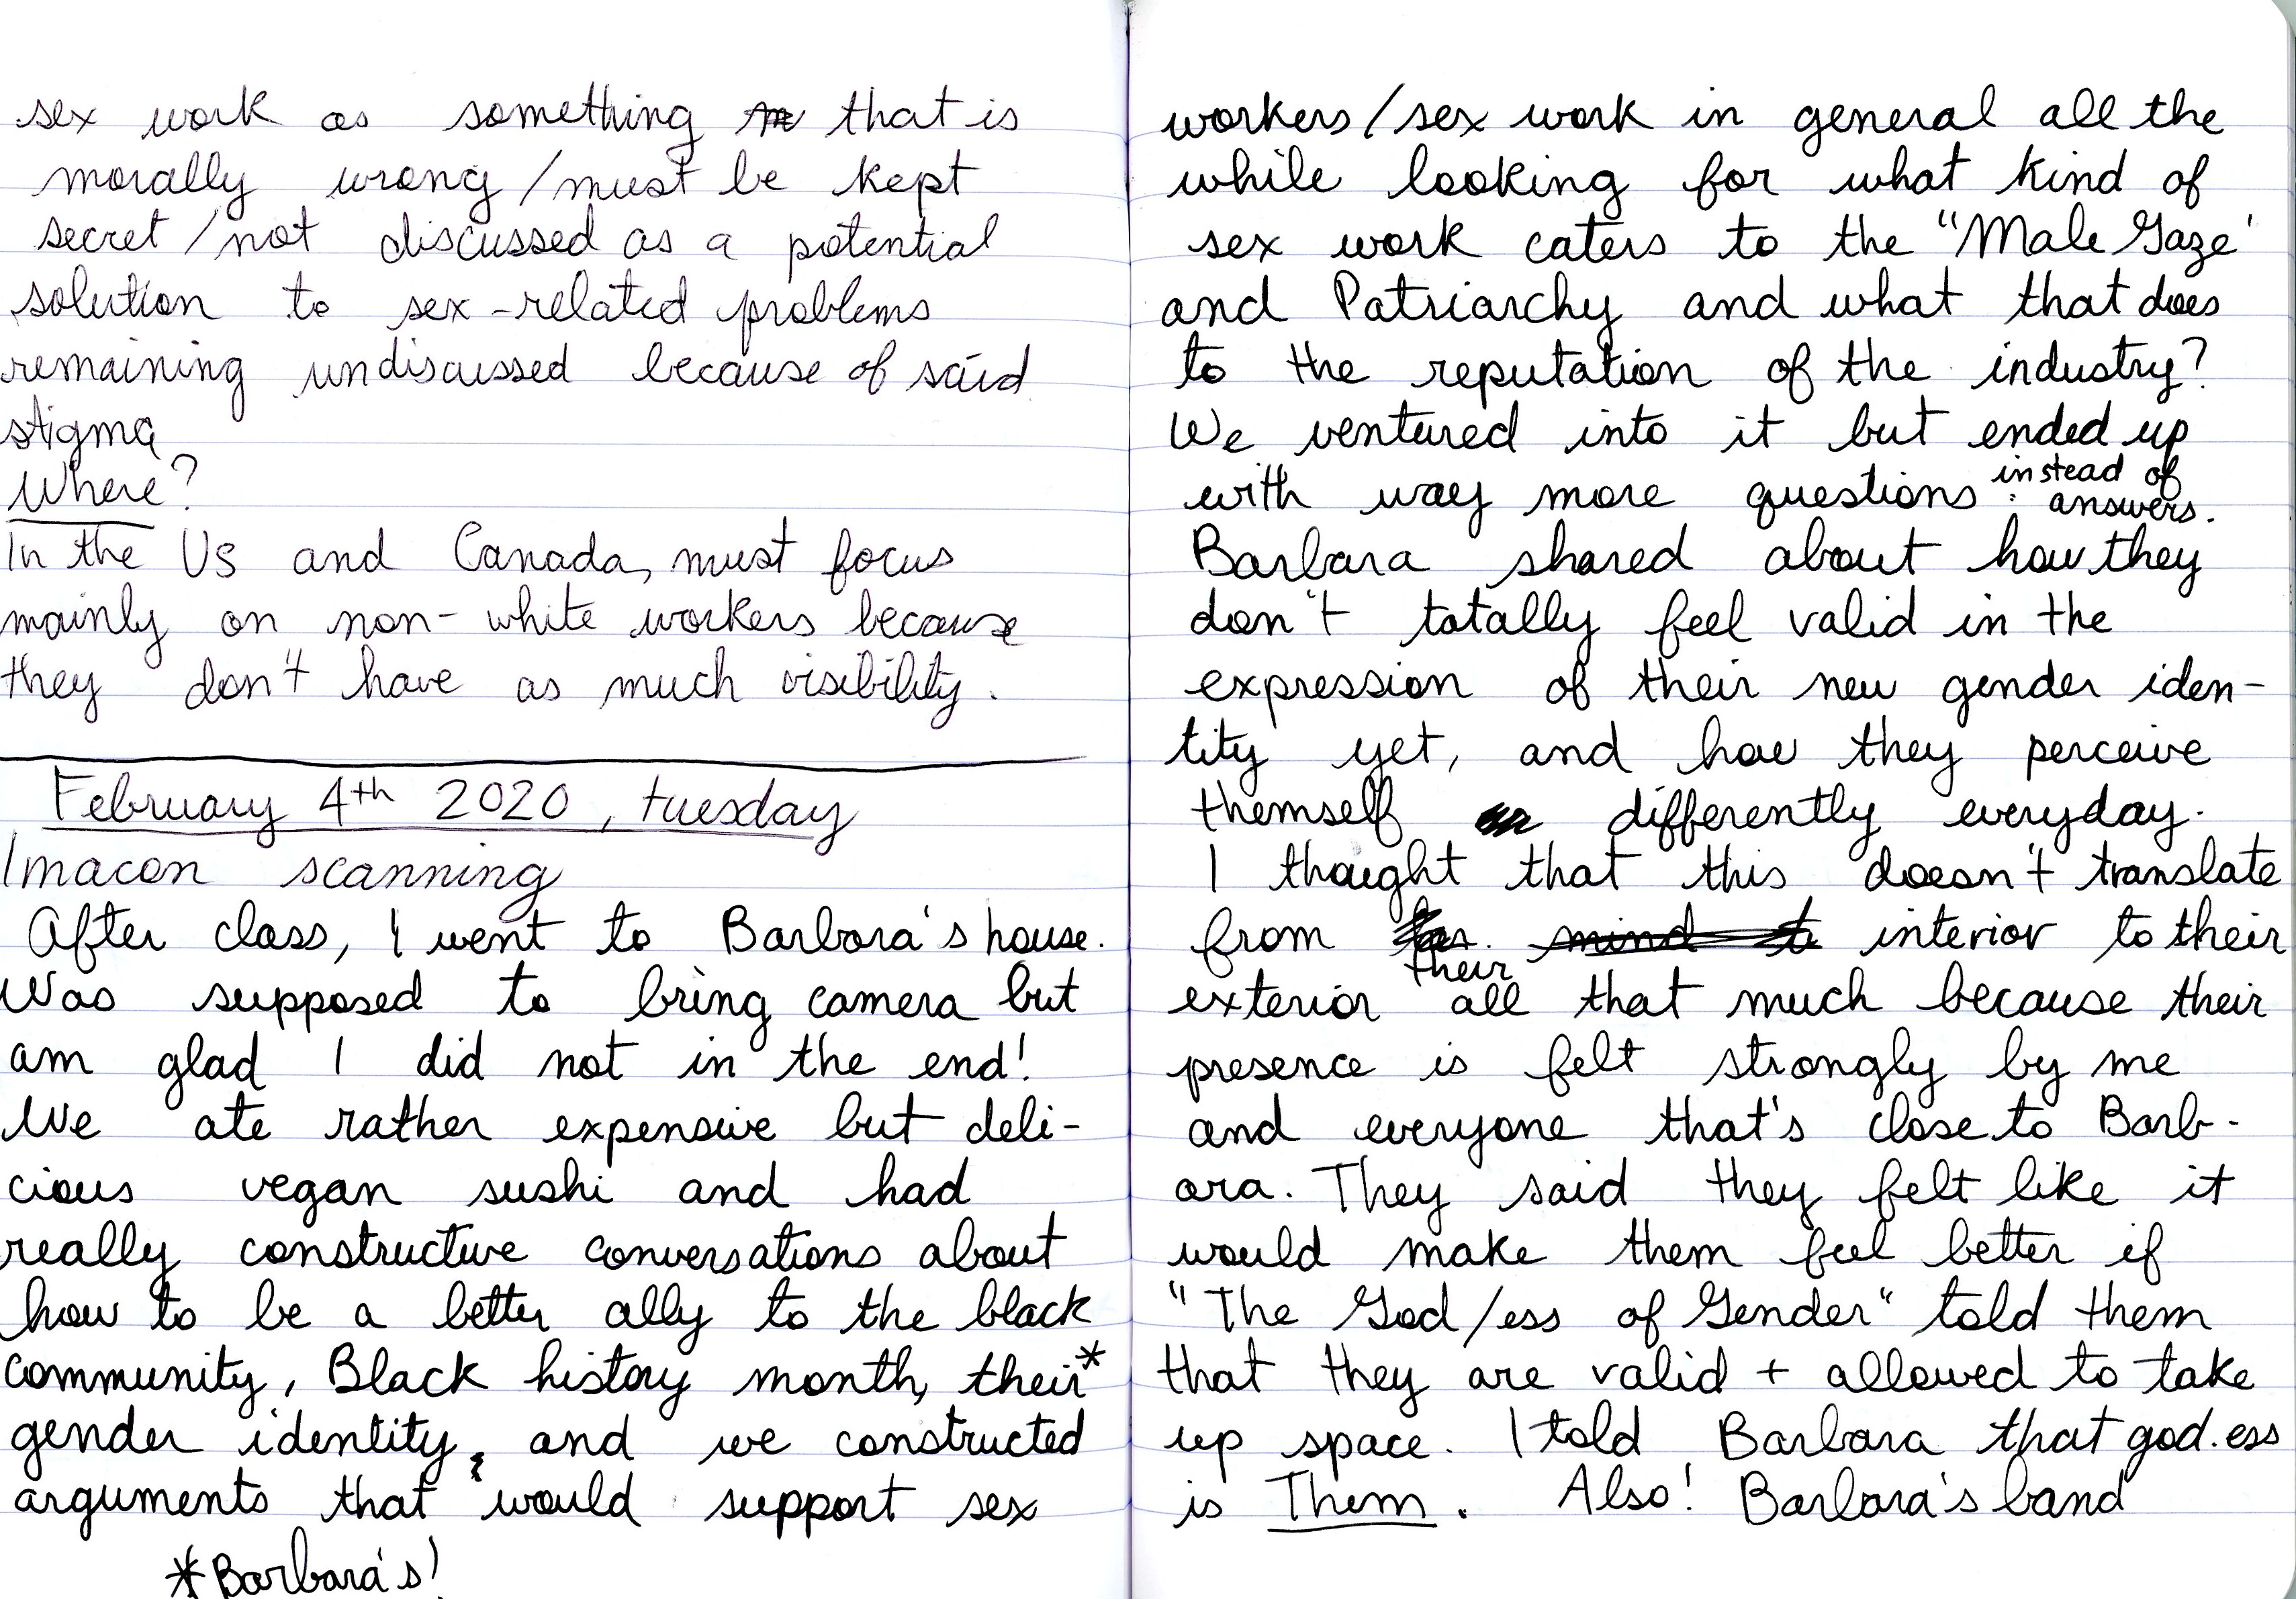 sex work as something that is
morally wrong/must be kept
secret/not discussed as a potential
solution to sex-related problems
remaining undiscussed because of said
stigma
Where?
In the US and Canada, must focus
mainly on non-white workers because
they don't have as much visibility.
February 4th 2020, tuesday
Imacon scanning
After class, I went to Barbara's house.
Was supposed to bring camera but
am glad I did not in the end!
We ate rather expensive but deli-
cious vegan sushi and had
really constructive conversations about
how to be a better ally to the black
community, Black history month, their*
gender identity, and we constructed
arguments that would support sex
*Barbara's!
workers/sex work in general all the
while looking for what kind of
sex work caters to the "Male Gaze'
and Patriarchy and what that does
to the reputation of the industry?
We ventured into it but ended up
with way more questions instead of
answers.
Barbara shared about how they
don't totally feel valid in the
expression of their new gender iden-
tity yet, and how they perceive
themself differently everyday.
I thought that this doesn't translate
from mind interior to their
their
exterior all that much because their
presence is felt strongly by me
and everyone that's close to Barb-
ara. They said they felt like it
would make them feel better if
"The God/ess of Gender" told them
that they are valid + allowed to take
up space. I told Barbara that god.ess
is Them. Also! Barbara's band